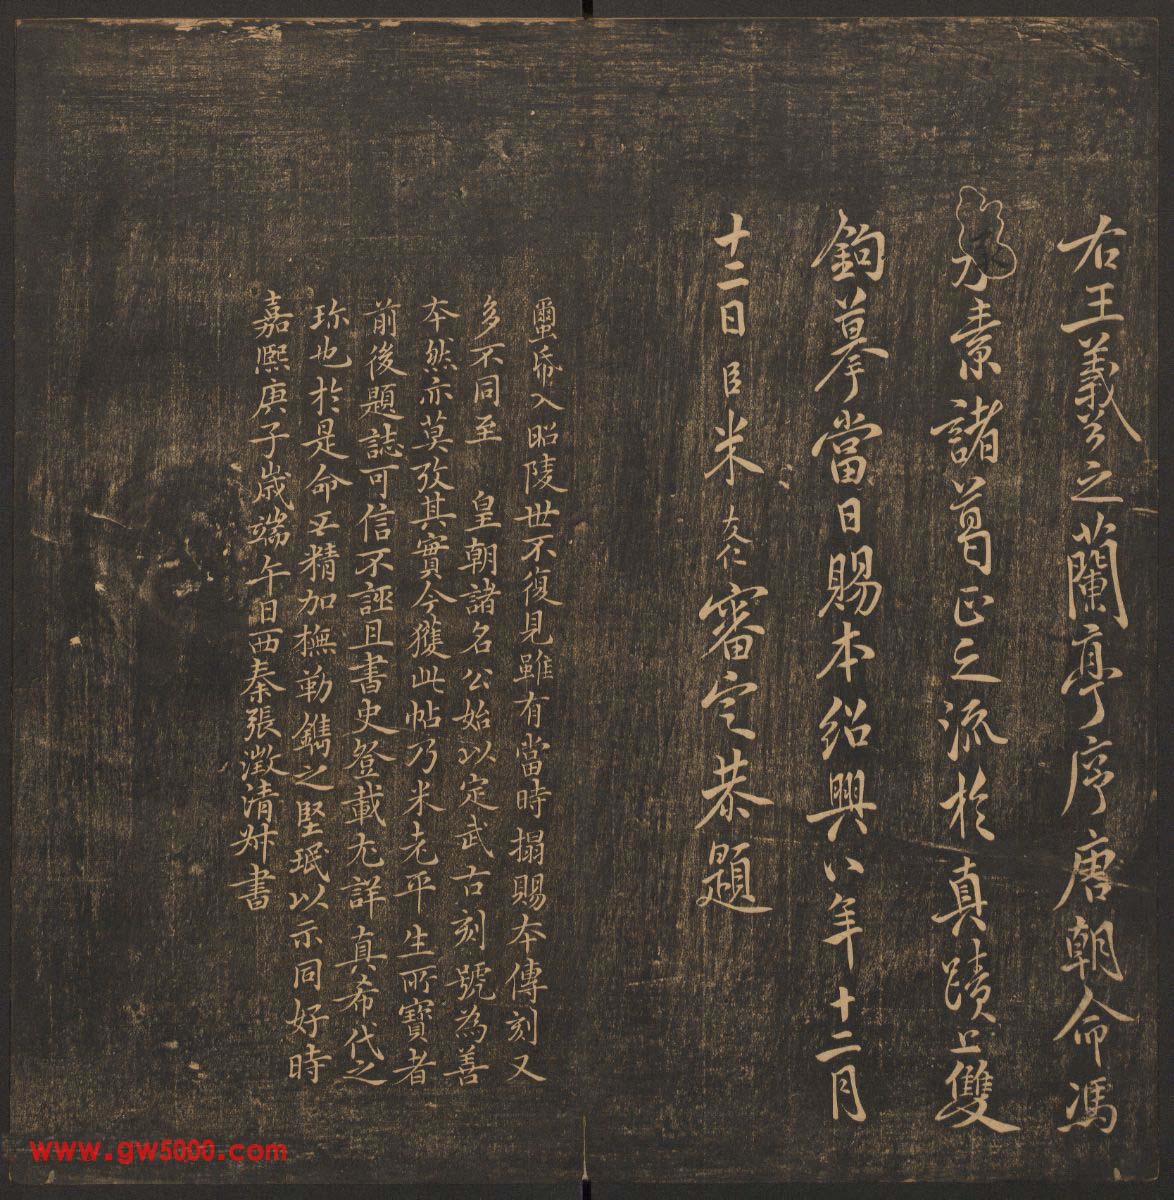 右王羲之蘭亭序唐朝命馮
承素諸葛正之流於真蹟上雙
鉤摹當日賜本紹興八年十二月
十二日臣米友仁審定恭題
璽㡀入昭陵世不復見雖有當時搨賜本傳刻又
多不同至 皇朝諸名公始以定武古刻號為善
本然亦莫攷其實今獲此帖乃米老平生所寶者
前後題誌可信不誣且書史登載尤詳真希代之
珎也於是命工精加撫勒鐫之堅珉以示同好時
嘉熙庚子歲端午日西秦張澂清叔書
www.gw5000.com